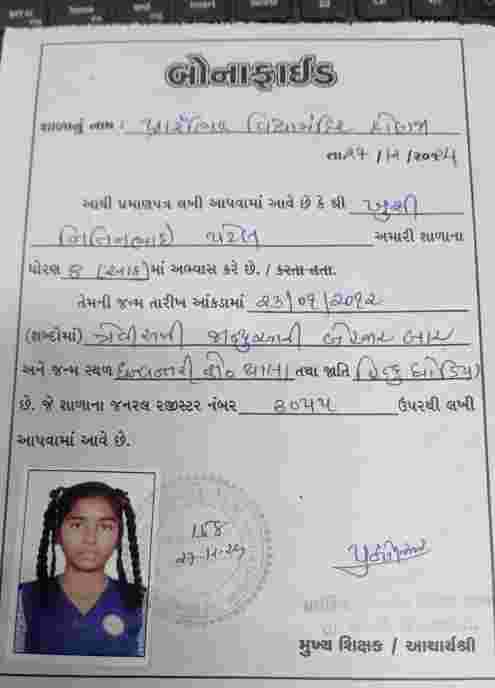 બોનાફાઈડ
શાળાનું નામ : પ્રાથમિક વિદ્યામંદિર
તા. 27 /12 /2024
આથી પ્રમાણપત્ર લખી આપવામાં આવે છે કે શ્રી ખુશી
નિતિનભાઈ પટેલ અમારી શાળાના
ધોરણ 8 (આઠ)માં અભ્યાસ કરે છે. / કરતા હતા.
તેમની જન્મ તારીખ આંકડામાં 23/01/2012
(શબ્દોમાં) ત્રેવીસમી જાન્યુઆરી બે હજાર બાર
અને જન્મ સ્થળ તથા જાતિ હિન્દુ ધોડિયા
છે. જે શાળાના જનરલ રજીસ્ટર નંબર 4055 ઉપરથી લખી
આપવામાં આવે છે.
168
27-12-24
મુખ્ય શિક્ષક / આચાર્યશ્રી